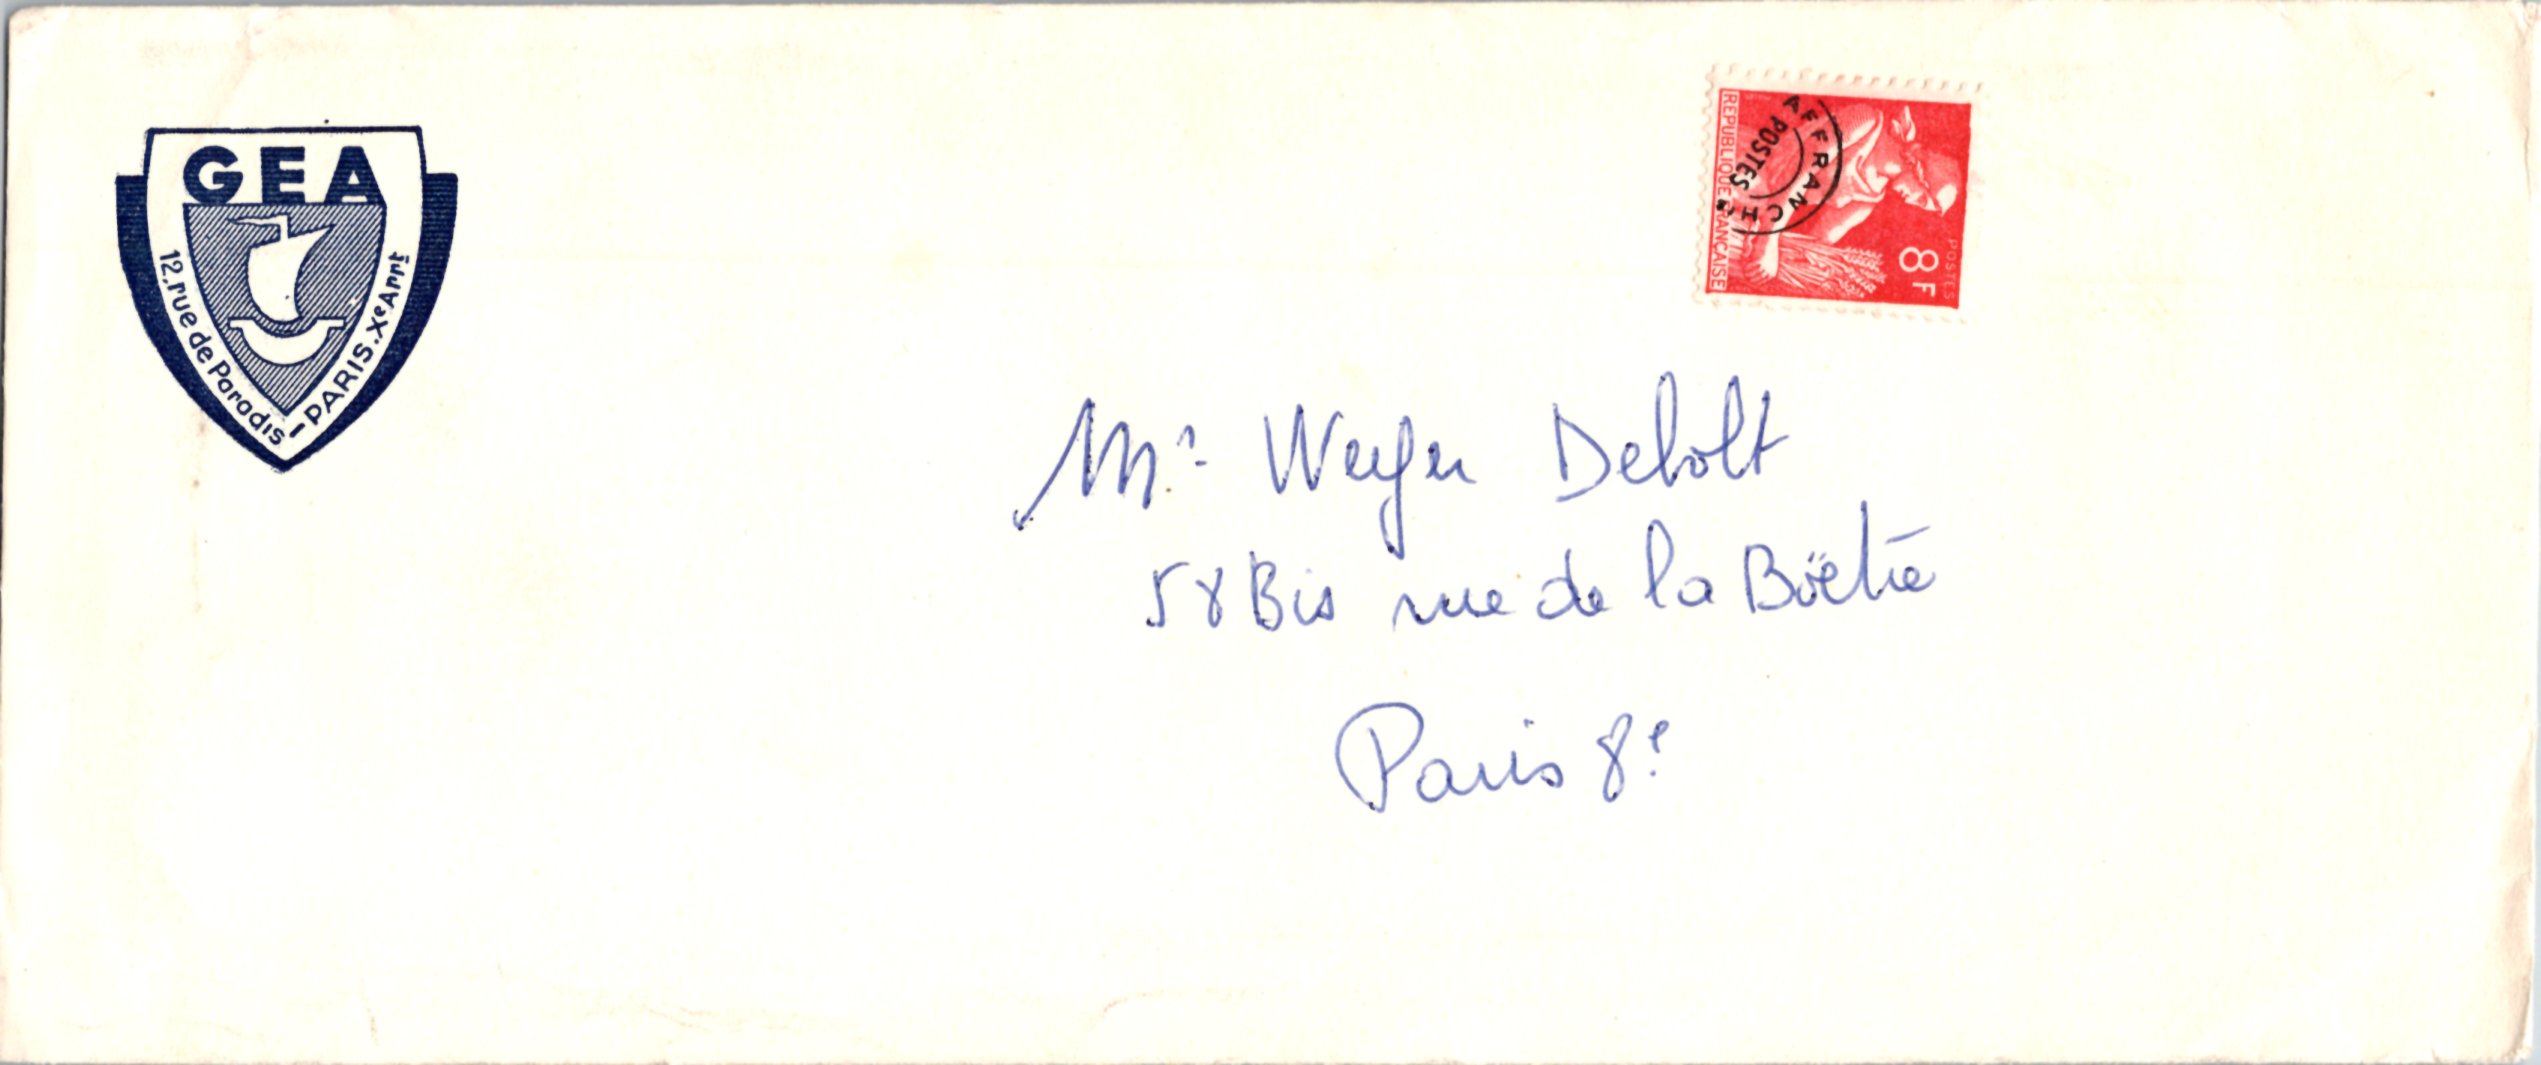 GEA
12, rue de Paradis
PARIS. Xe Arrt
REPUBLIQUE FRANÇAISE
POSTES
8F
AFFRANCHts
POSTES
Mr Weyer Debolt
58 Bis rue de la Böetie
Paris 8e